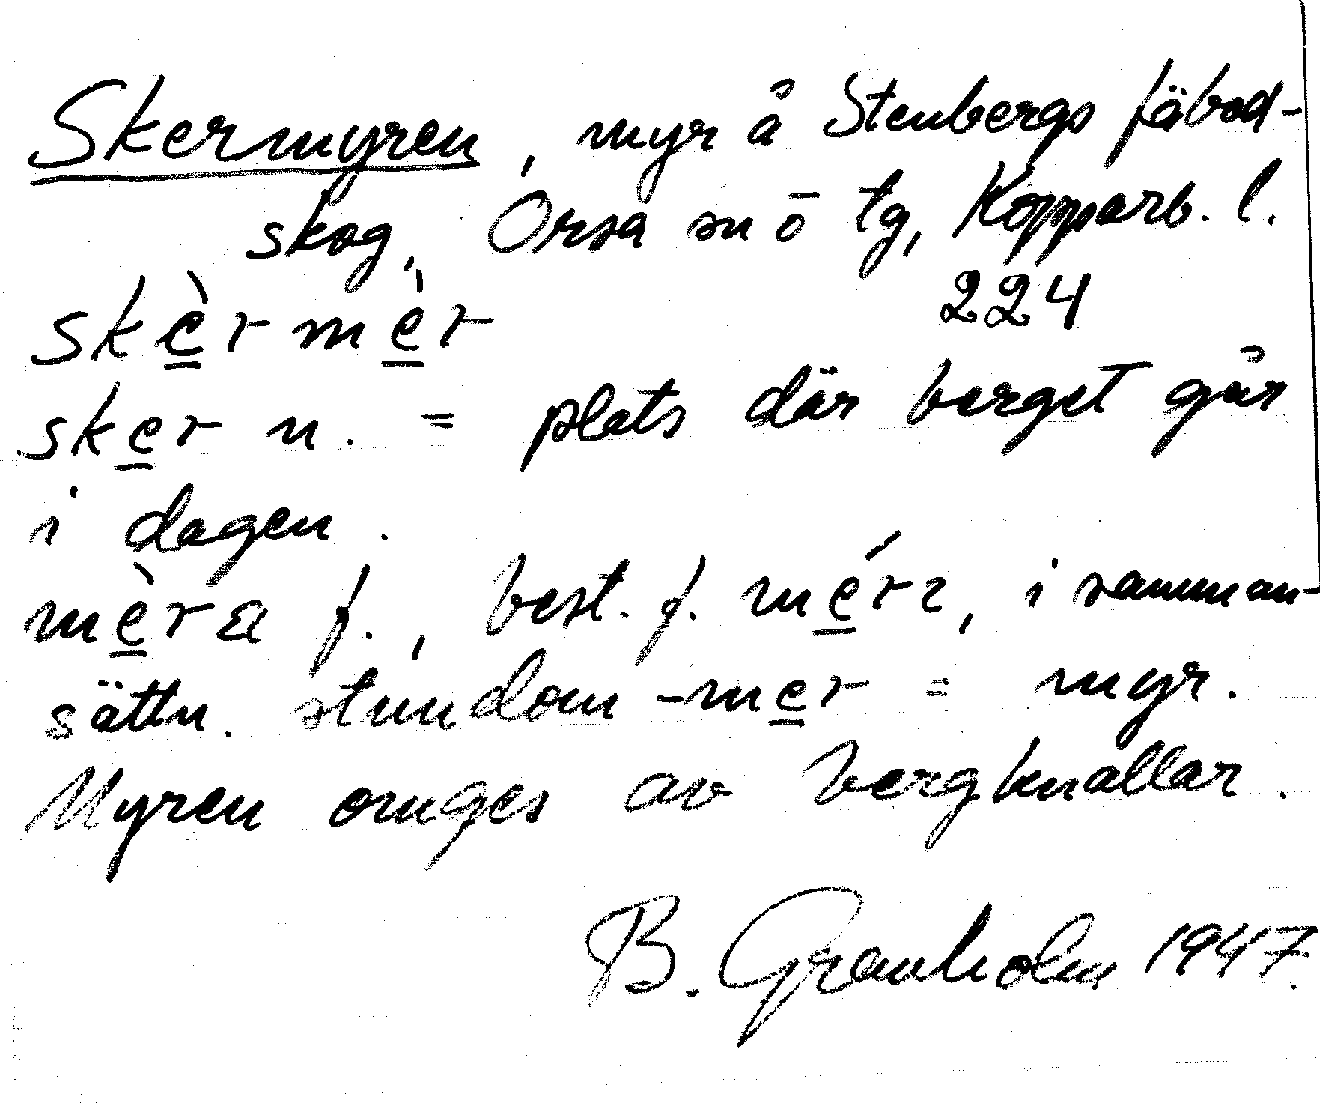 Skermyren, myr å Stenbergs fäbod-
skog, Orsa sn ō tg, Kopparb. l.
224
skè̱rmè̱r
ske̱r n. = plats där berget går
i dagen.
mè̱ra f., best. f. mé̱rɿ, i samman-
sättn. stundom -me̱r = myr.
Myren omges av bergknallar.
B. Granholm 1947.